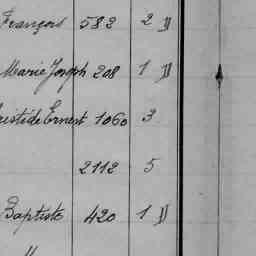 François 582 2 "
Marie Joseph 208 1 "
Aristide Ernest 1060 3
2112 5
Baptiste 420 1 "
"